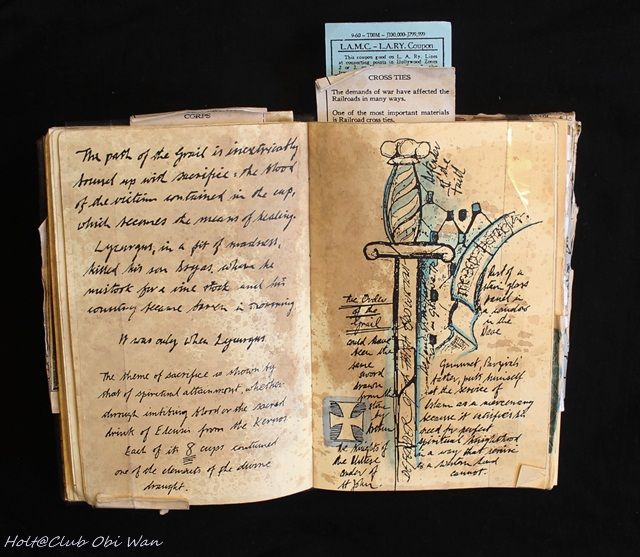 9-60 – T00M – J100,000-J299,999
L.A.M.C. – L.A.RY. Coupon
This coupon good on L. A. Ry. Lines
at connecting points in Hollywood Zones
CROSS TIES
The demands of war have affected the
Railroads in many ways.
One of the most important materials
is Railroad cross ties.
CORPS
The path of the Grail is inextricably
bound up with sacrifice: the blood
of the victim contained in the cup,
which becomes the means of healing.
Lycurgus, in a fit of madness,
killed his son Dryas, whom he
mistook for a vine stock and his
country became barren in mourning
It was only when Lycurgus
The theme of sacrifice is shown by
that of spiritual attainment, whether
through imbibing blood or the sacred
drink of Eleusis from the Kernos
Each of its 8 cups contained
one of the elements of the divine
draught.
The Order
of the
Grail
could have
been the
same
sword
drawn
from the
stone
by
Arthur
The Knights of
the Military
Order of
St John.
Part of a
glass
panel in
a window
in the
Nave
Gahmuret, Parzival's
father, puts himself
at the service of
Islam as a mercenary
because it satisfies his
need for perfect
spiritual knighthood
in a way that course
a Western
cannot.
Holt@Club Obi Wan